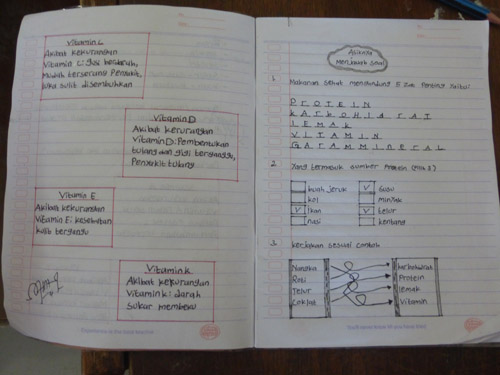 Vitamin C
Akibat kekurangan
Vitamin C: gusi berdarah,
Mudah terserang Penyakit,
luka sulit disembuhkan
Vitamin D
Akibat kekurangan
Vitamin D: Pembentukan
tulang dan gigi terganggu,
Penyakit tulang
Vitamin E
Akibat kekurangan
Vitamin E: kesehatan
kulit
Vitamin K
Akibat kekurangan
Vitamin K: darah
sukar membeku
Asiknya
Menjawab Soal
1. Makanan sehat mengandung 5 zat Penting yaitu:
PROTEIN
KARBOHIDRAT
LEMAK
VITAMIN
GARAM MINERAL
2. Yang termasuk sumber Protein
buah jeruk V susu
kol minyak
V ikan V telur
nasi kentang
3. kerjakan sesuai contoh
Nangka karbohidrat
Roti Protein
Telur lemak
Coklat Vitamin